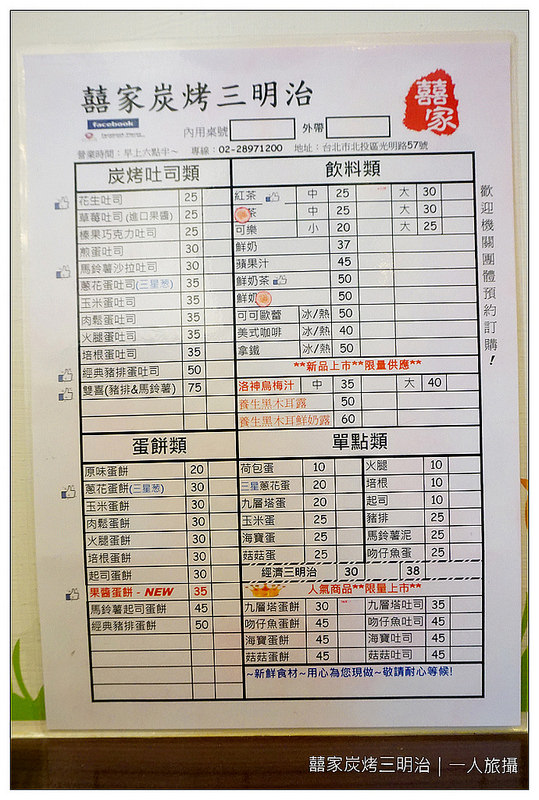 囍家炭烤三明治
囍家
facebook
內用桌號 外帶
營業時間：早上六點半~ 專線：02-28971200 地址：台北市北投區光明路57號
歡迎機關團體預約訂購！
炭烤吐司類
花生吐司 25
草莓吐司(進口果醬) 25
榛果巧克力吐司 25
煎蛋吐司 30
馬鈴薯沙拉吐司 30
蔥花蛋吐司(三星葱) 35
玉米蛋吐司 35
肉鬆蛋吐司 35
火腿蛋吐司 35
培根蛋吐司 35
經典豬排蛋吐司 50
雙喜(豬排&馬鈴薯) 75
飲料類
紅茶 中 25 大 30
茶 中 25 大 30
可樂 小 20 大 25
鮮奶 37
蘋果汁 45
鮮奶茶 50
鮮奶 50
可可歐蕾 冰/熱 50
美式咖啡 冰/熱 40
拿鐵 冰/熱 50
**新品上市**限量供應**
洛神烏梅汁 中 35 大 40
養生黑木耳露 50
養生黑木耳鮮奶露 60
蛋餅類
原味蛋餅 20
蔥花蛋餅(三星葱) 30
玉米蛋餅 30
肉鬆蛋餅 30
火腿蛋餅 30
培根蛋餅 30
起司蛋餅 30
果醬蛋餅 - NEW 35
馬鈴薯起司蛋餅 45
經典豬排蛋餅 50
單點類
荷包蛋 10 火腿 10
三星蔥花蛋 20 培根 10
九層塔蛋 20 起司 10
玉米蛋 25 豬排 25
海寶蛋 25 馬鈴薯泥 25
菇菇蛋 25 吻仔魚蛋 25
經濟三明治 30 38
人氣商品**限量上市**
九層塔蛋餅 30 九層塔吐司 35
吻仔魚蛋餅 45 吻仔魚吐司 45
海寶蛋餅 45 海寶吐司 45
菇菇蛋餅 45 菇菇吐司 45
~新鮮食材~用心為您現做~敬請耐心等候!
囍家炭烤三明治｜一人旅攝